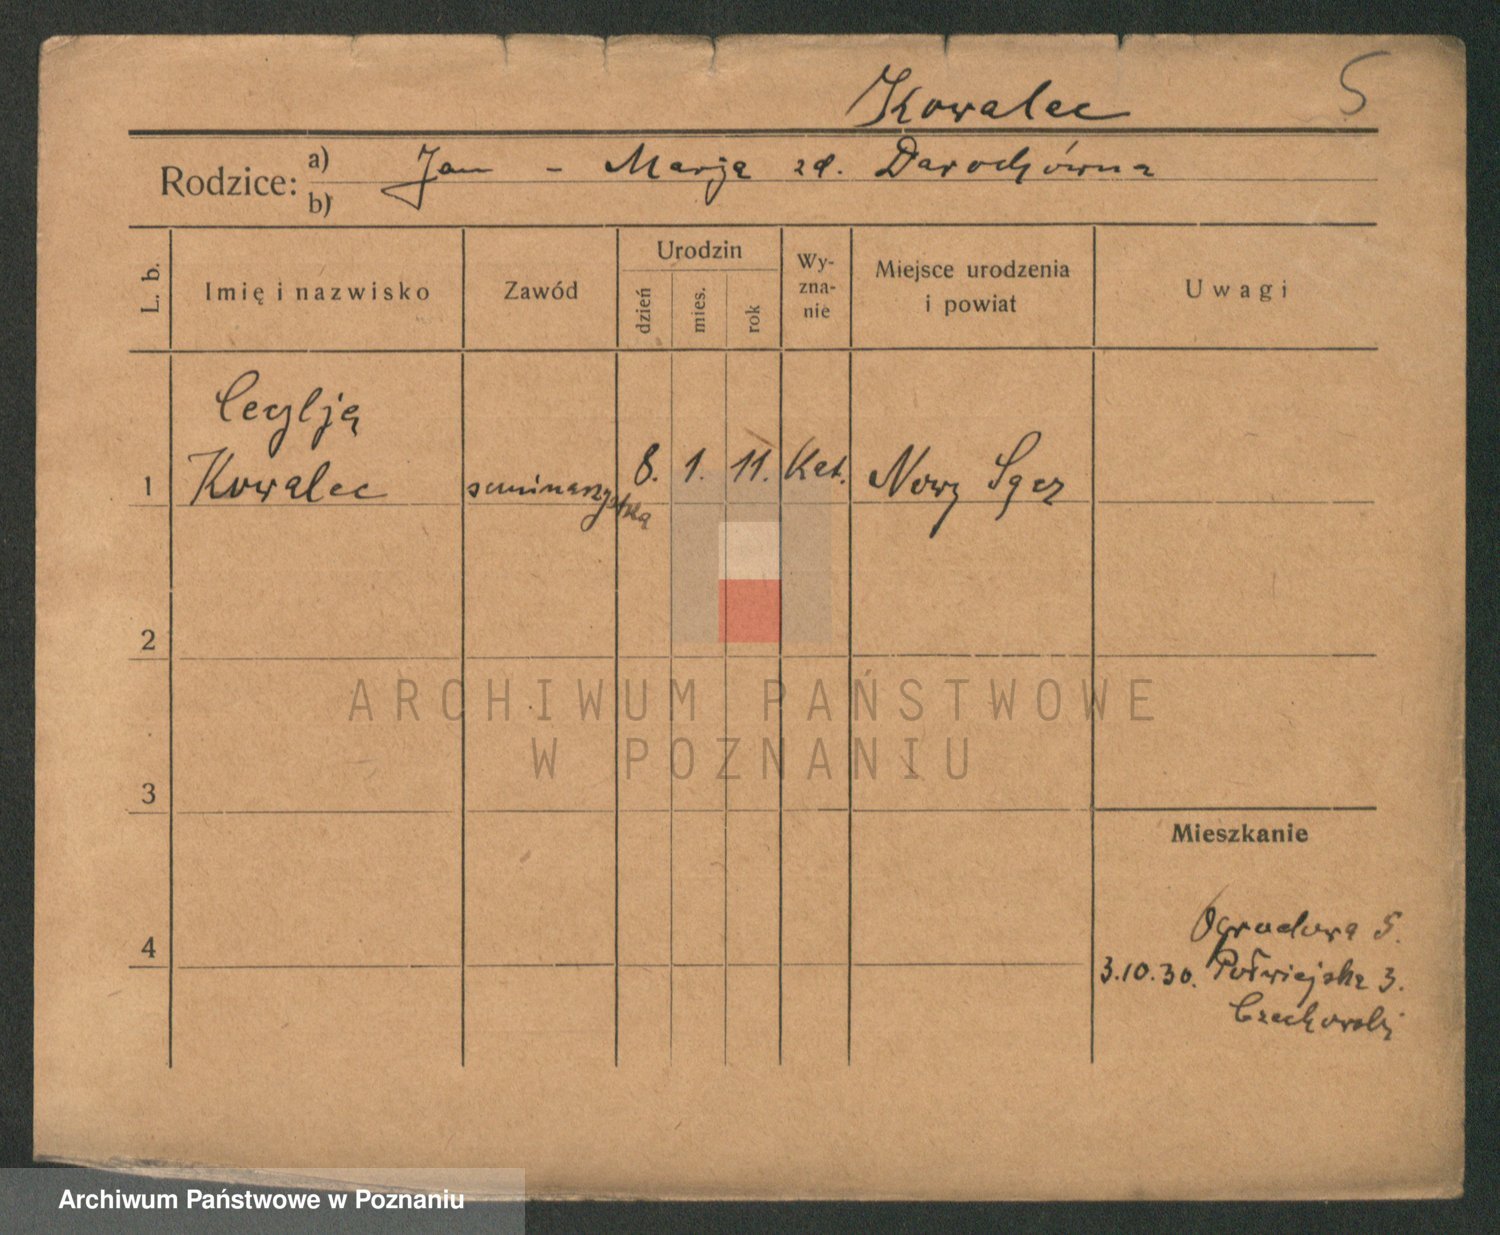 Kowalec
5
Rodzice: a) Jan - Marja zd. Darochówna
b)
L. b.
Imię i nazwisko
Zawód
Urodzin
dzień
mies.
rok
Wy-
zna-
nie
Miejsce urodzenia
i powiat
Uwagi
Cecylja
1 Kowalec seminarzystka 8. 1. 11. Kat. Nowy Sącz
2
ARCHIWUM PAŃSTWOWE
W POZNANIU
3
Mieszkanie
4
Ogrodowa 5.
3.10.30. Półwiejska 3.
Czechowski
Archiwum Państwowe w Poznaniu